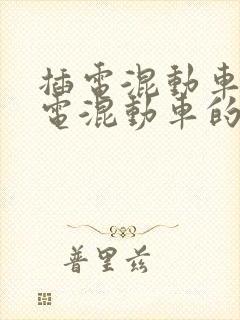 插電混動車
電混動車的
普里兹